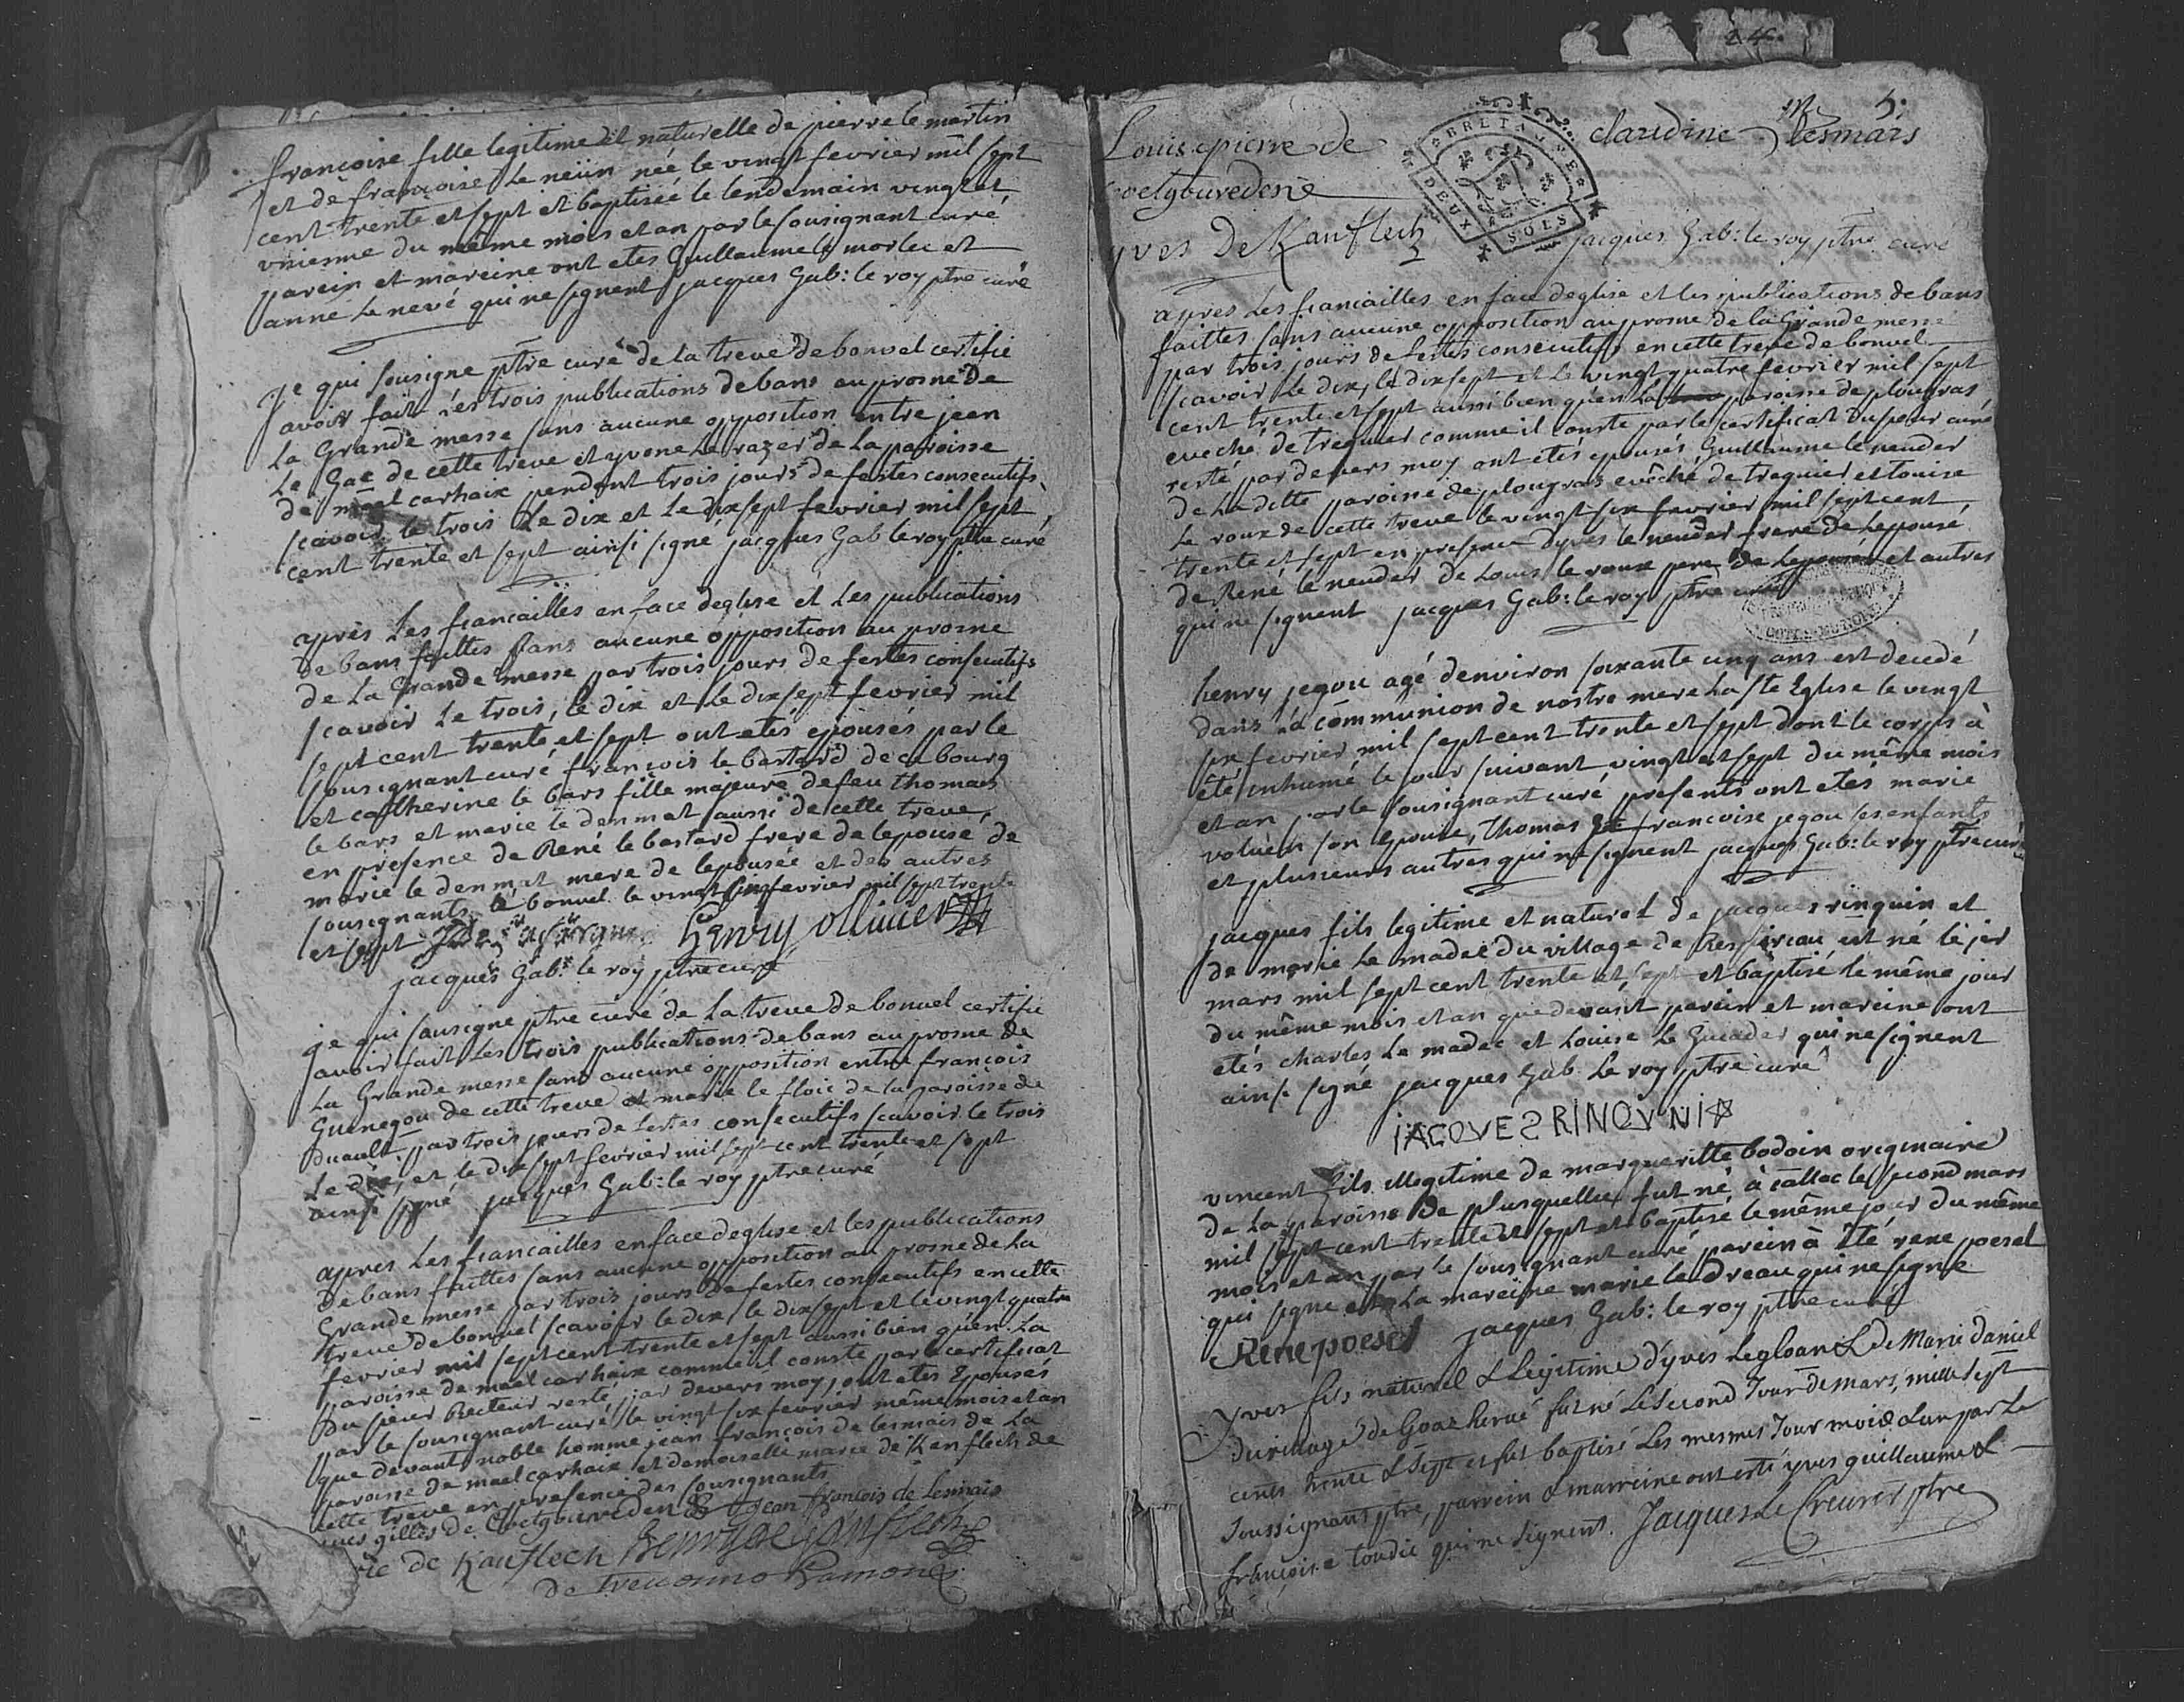 francoise fille legitime et naturelle de pierre le martin
et de francoise Le neün née le vingt fevrier mil sept
cent trente et sept et baptiseé le lendemain vingt et
unienme du même mois et an par le sousignant curé
parein et mareine ont etes Guillaume le morlec et
anne Le nevé qui ne signent jacques Gab: le roy ptre curé
je qui sousigne ptre curé de la treve de bonuel certifie
avoir fait Les trois publications de bans au prosne De
La Grande messe sans aucune opposition entre jean
Le Gac de cette treve et yvone Le razer de La paroisse
de mael carhaix pendant trois jours de festes consecutifs
scavoir le trois Le dix et Le dixsept fevrier mil sept
cent trente et sept ainsi signé jacques Gab le roy ptre curé
après Les fiancailles en face deglise et Les publications
De bans faittes sans aucune opposition au prosne
de La Grande messe par trois jours de festes consecutifs
scavoir Le trois, le dix et Le dixsept fevrier mil
sept cent trente et sept ont etés epousés par le
sousignant curé francois le bastard de ce bourg
et catherine le bars fille majeure de feu thomas
le bars et marie le denmat aussi de cette treve,
en presence de René le bastard frere de lepouse de
marie le denmat mere de lepousée et des autres
sousignants à bonuel le vingt fevrier mil sept trente
et sept henry ollivier
jacques Gab: le roy ptre curé
je qui sousigne ptre curé de La treve de bonuel certifie
avoir fait Les trois publications de bans au prosne de
La Grande messe sans aucune opposition entre francois
Guenegou de cette treve et marie le floic de la paroisse de
Duault par trois jours de festes consecutifs scavoir le trois
Le dix, et le dix sept fevrier mil sept cent trente et sept
ainsi signé jacques Gab: le roy ptre curé
apres Les fiancailles en face deglise et les publications
De bans faittes sans aucune opposition au prosne de La
Grande messe par trois jours de festes consecutifs en cette
treve de bonuel scavoir le dix, le dixsept et le vingt quatre
fevrier mil sept cent trente et sept aussi bien qu'en La
paroisse de mael carhaix comme il conste par le certificat
Du sieur Recteur resté par devers moy, ont etes Epousés
par le sousignant curé le vingt six fevrier même mois et an
que devant noble homme jean francois de lesmais de La
paroisse de mael carhaix et demoiselle marie de Kanflech de
cette treve en presence des sousignants
gilles de Coetgouvreden jean francois de Lesmais
de Kanflech henry de Kanflech
de Ramone
24.
5.
Louis pierre de claudine lesmars
coetgouvedene
yves De Kanflech jacques Gab: le roy ptre curé
BRETAGNE DEUX SOLS
apres Les fiancailles en face deglise et les publications de bans
faittes sans aucune opposition au prosne de la Grande messe
par trois jours de festes consecutifs en cette treve de bonuel
scavoir Le dix, le dixsept et le vingt quatre fevrier mil sept
cent trente et sept aussi bien qu'en La paroisse de plougras
eveché de treguier comme il conste par le certificat du sieur curé
resté par devers moy ont etés epousés Guillaume le neuder
de La ditte paroisse de plougras evêché de treguier et Louise
Le roux de cette treve le vingt six fevrier mil sept cent
trente et sept en presence dyves le neuder frere de lepousé,
de René le neuder de Louis le roux pere de Lepousée et autres
qui ne signent jacques Gab: le roy ptre curé
henry jegou agé denviron soixante cinq ans est decedé
dans La communion de nostre mere La ste Eglise le vingt
six fevrier mil sept cent trente et sept dont le corps à
eté inhumé le jour suivant vingt et sept du même mois
et an par le sousignant curé presents ont etés marie
voluen son epouse, thomas francoise jegou ses enfants
et plusieurs autres qui ne signent jacques Gab: le roy ptre curé
jacques fils legitime et naturel de jacques rinquin et
de marie Le madec du village de est né le jer
mars mil sept cent trente et sept et baptisé le même jour
du même mois et an que devant parein et mareine ont
etés charles Le madec et Louise Le Gueader qui ne signent
ainsi signé jacques Gab Le roy ptre curé
iACQUES RINQUNI
vincent fils illegitime de margueritte bodoin originaire
de La paroisse De plusquellec fut né à callac le second mars
mil sept cent trente et sept et baptisé le même jour du même
mois et an par le sousignant curé parein à Eté rene poesel
qui signe et La mareine marie le dreau qui ne signe
Rene poesel jacques Gab: le roy ptre curé
Yves fils naturel & Legitime d'yves Legloan & de Marie daniel
du village de Goazhervé fut né Le second Jour de mars, mille sept
cents trente & sept et fut baptisé Les mesmes Jour mois & an par Le
soussignant ptre, parrein & marreine ont esté yves guillaume &
francoise toudic qui ne signent. Jacques Le Creurer ptre